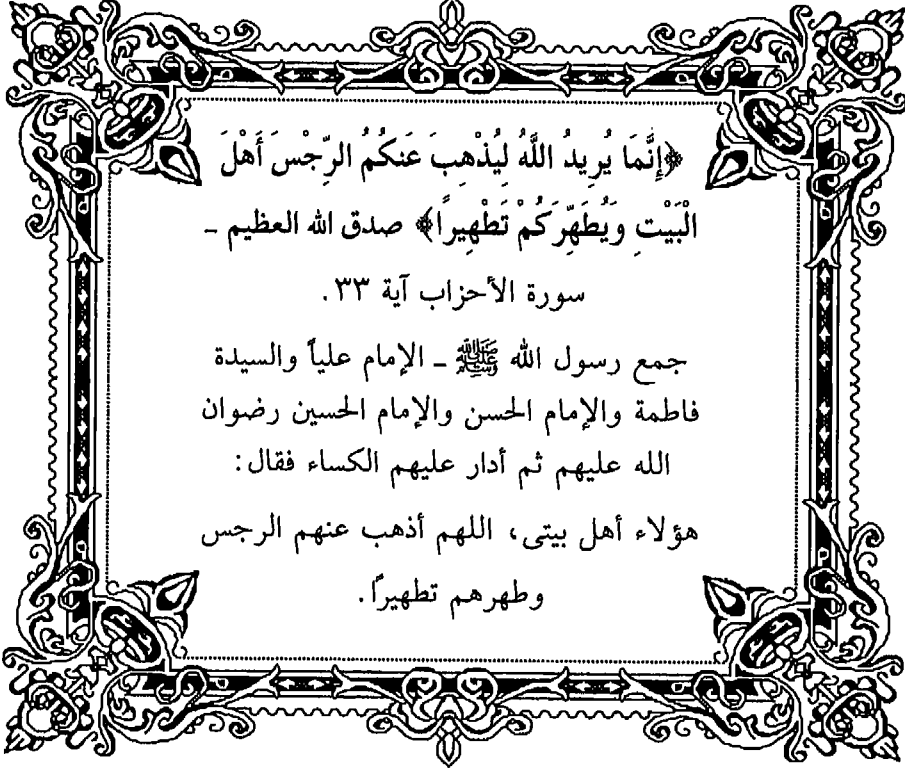 ﴿إِنَّمَا يُرِيدُ اللَّهُ لِيُذْهِبَ عَنكُمُ الرِّجْسَ أَهْلَ
الْبَيْتِ وَيُطَهِّرَكُمْ تَطْهِيرًا﴾ صدق الله العظيم ـ
سورة الأحزاب آية ٣٣.
جمع رسول الله ﷺ ـ الإمام علياً والسيدة
فاطمة والإمام الحسن والإمام الحسين رضوان
الله عليهم ثم أدار عليهم الكساء فقال:
هؤلاء أهل بيتى، اللهم أذهب عنهم الرجس
وطهرهم تطهيراً.